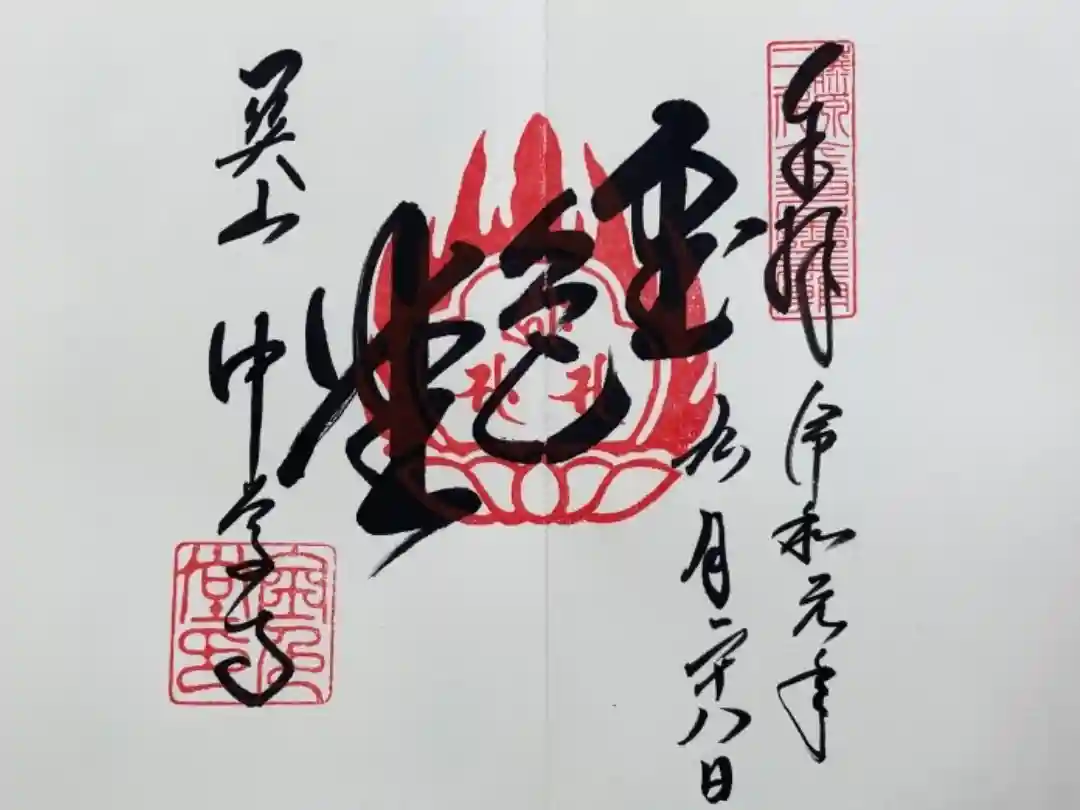 奉拝
令和元年
月二十八日
金色堂
関山 中尊寺
金色堂印